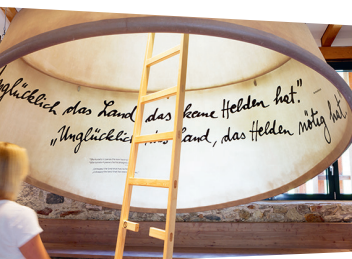 Unglücklich das Land, das keine Helden hat." –
„Unglücklich das Land, das Helden nötig hat